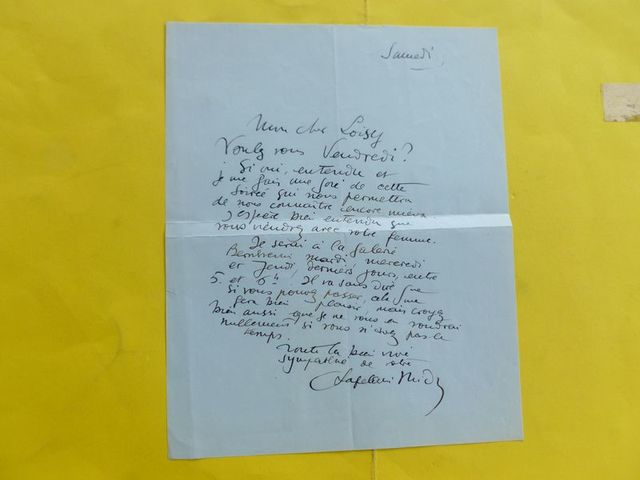 Samedi,
Mon cher Loisy
Voulez vous Vendredi?
Si oui, entendu et
je me fais une joie de cette
soirée qui nous permettra
de nous connaître encore mieux.
J'espère bien entendu que
vous viendrez avec votre femme.
Je serai à la galerie
mardi, mercredi
et Jeudi, derniers jours, entre
5 et 6h. Il va sans dire que
si vous pouvez passer, cela me
fera bien plaisir, mais croyez
bien aussi que je ne vous en voudrai
nullement si vous n'avez pas le
temps.
Toute la bien vive
sympathie de votre